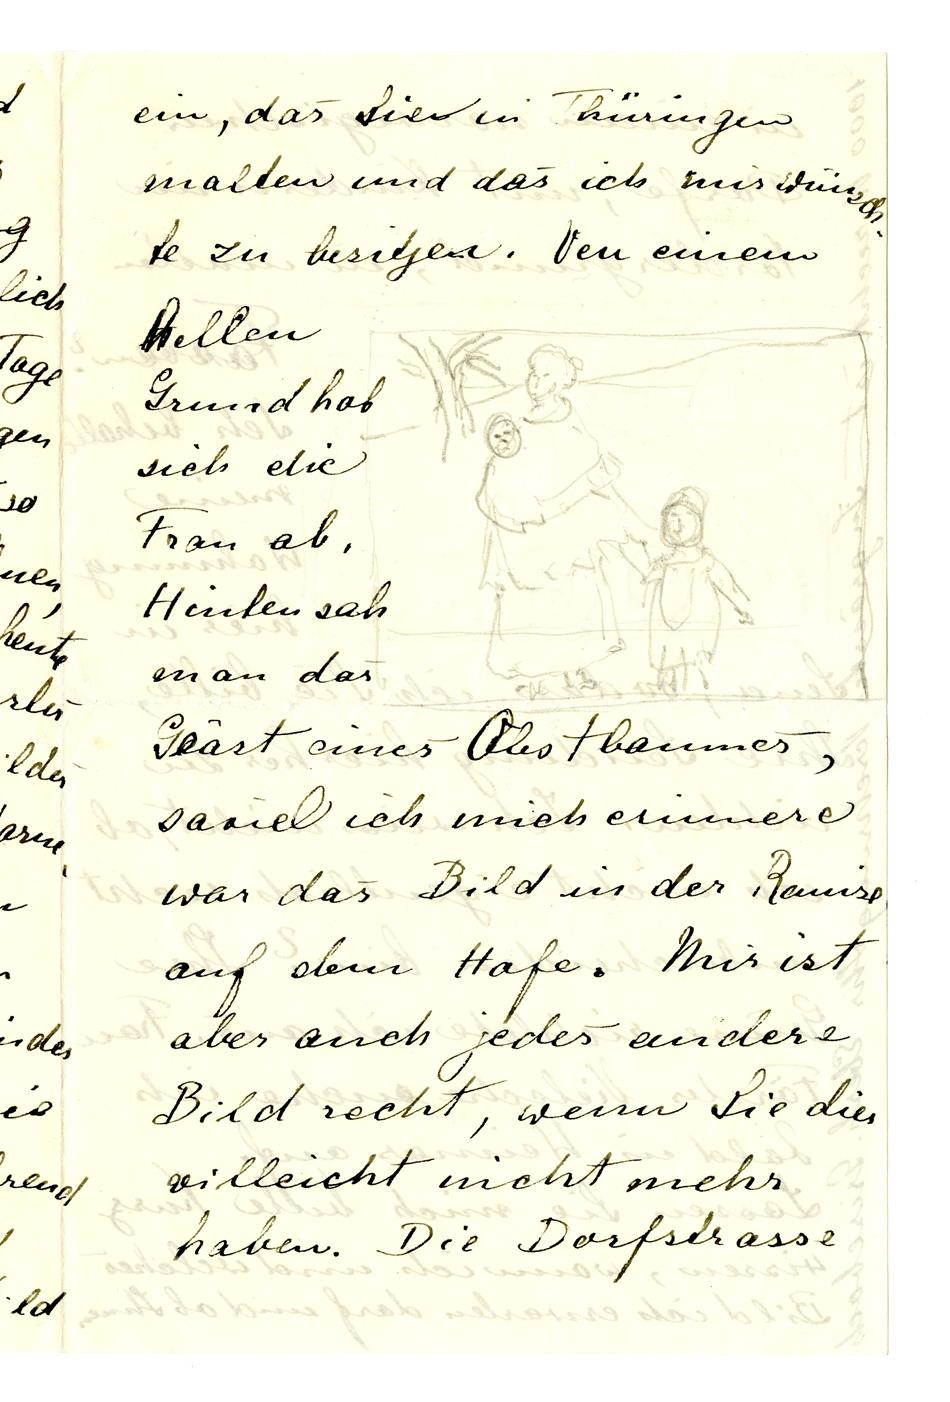 ein, das Sie in Thüringen
malten und das ich mir wünsch-
te zu besitzen. Von einem
hellen
Grund hob
sich die
Frau ab.
Hinten sah
man das
Geäst eines Obstbaumes,
soviel ich mich erinnere
war das Bild in der Remise
auf dem Hofe. Mir ist
aber auch jedes andere
Bild recht, wenn Sie dies
villeicht nicht mehr
haben. Die Dorfstrasse
d
g
lich
Tage
gen
so
nen,
heute
ilder
arme,
indes
rend
ild